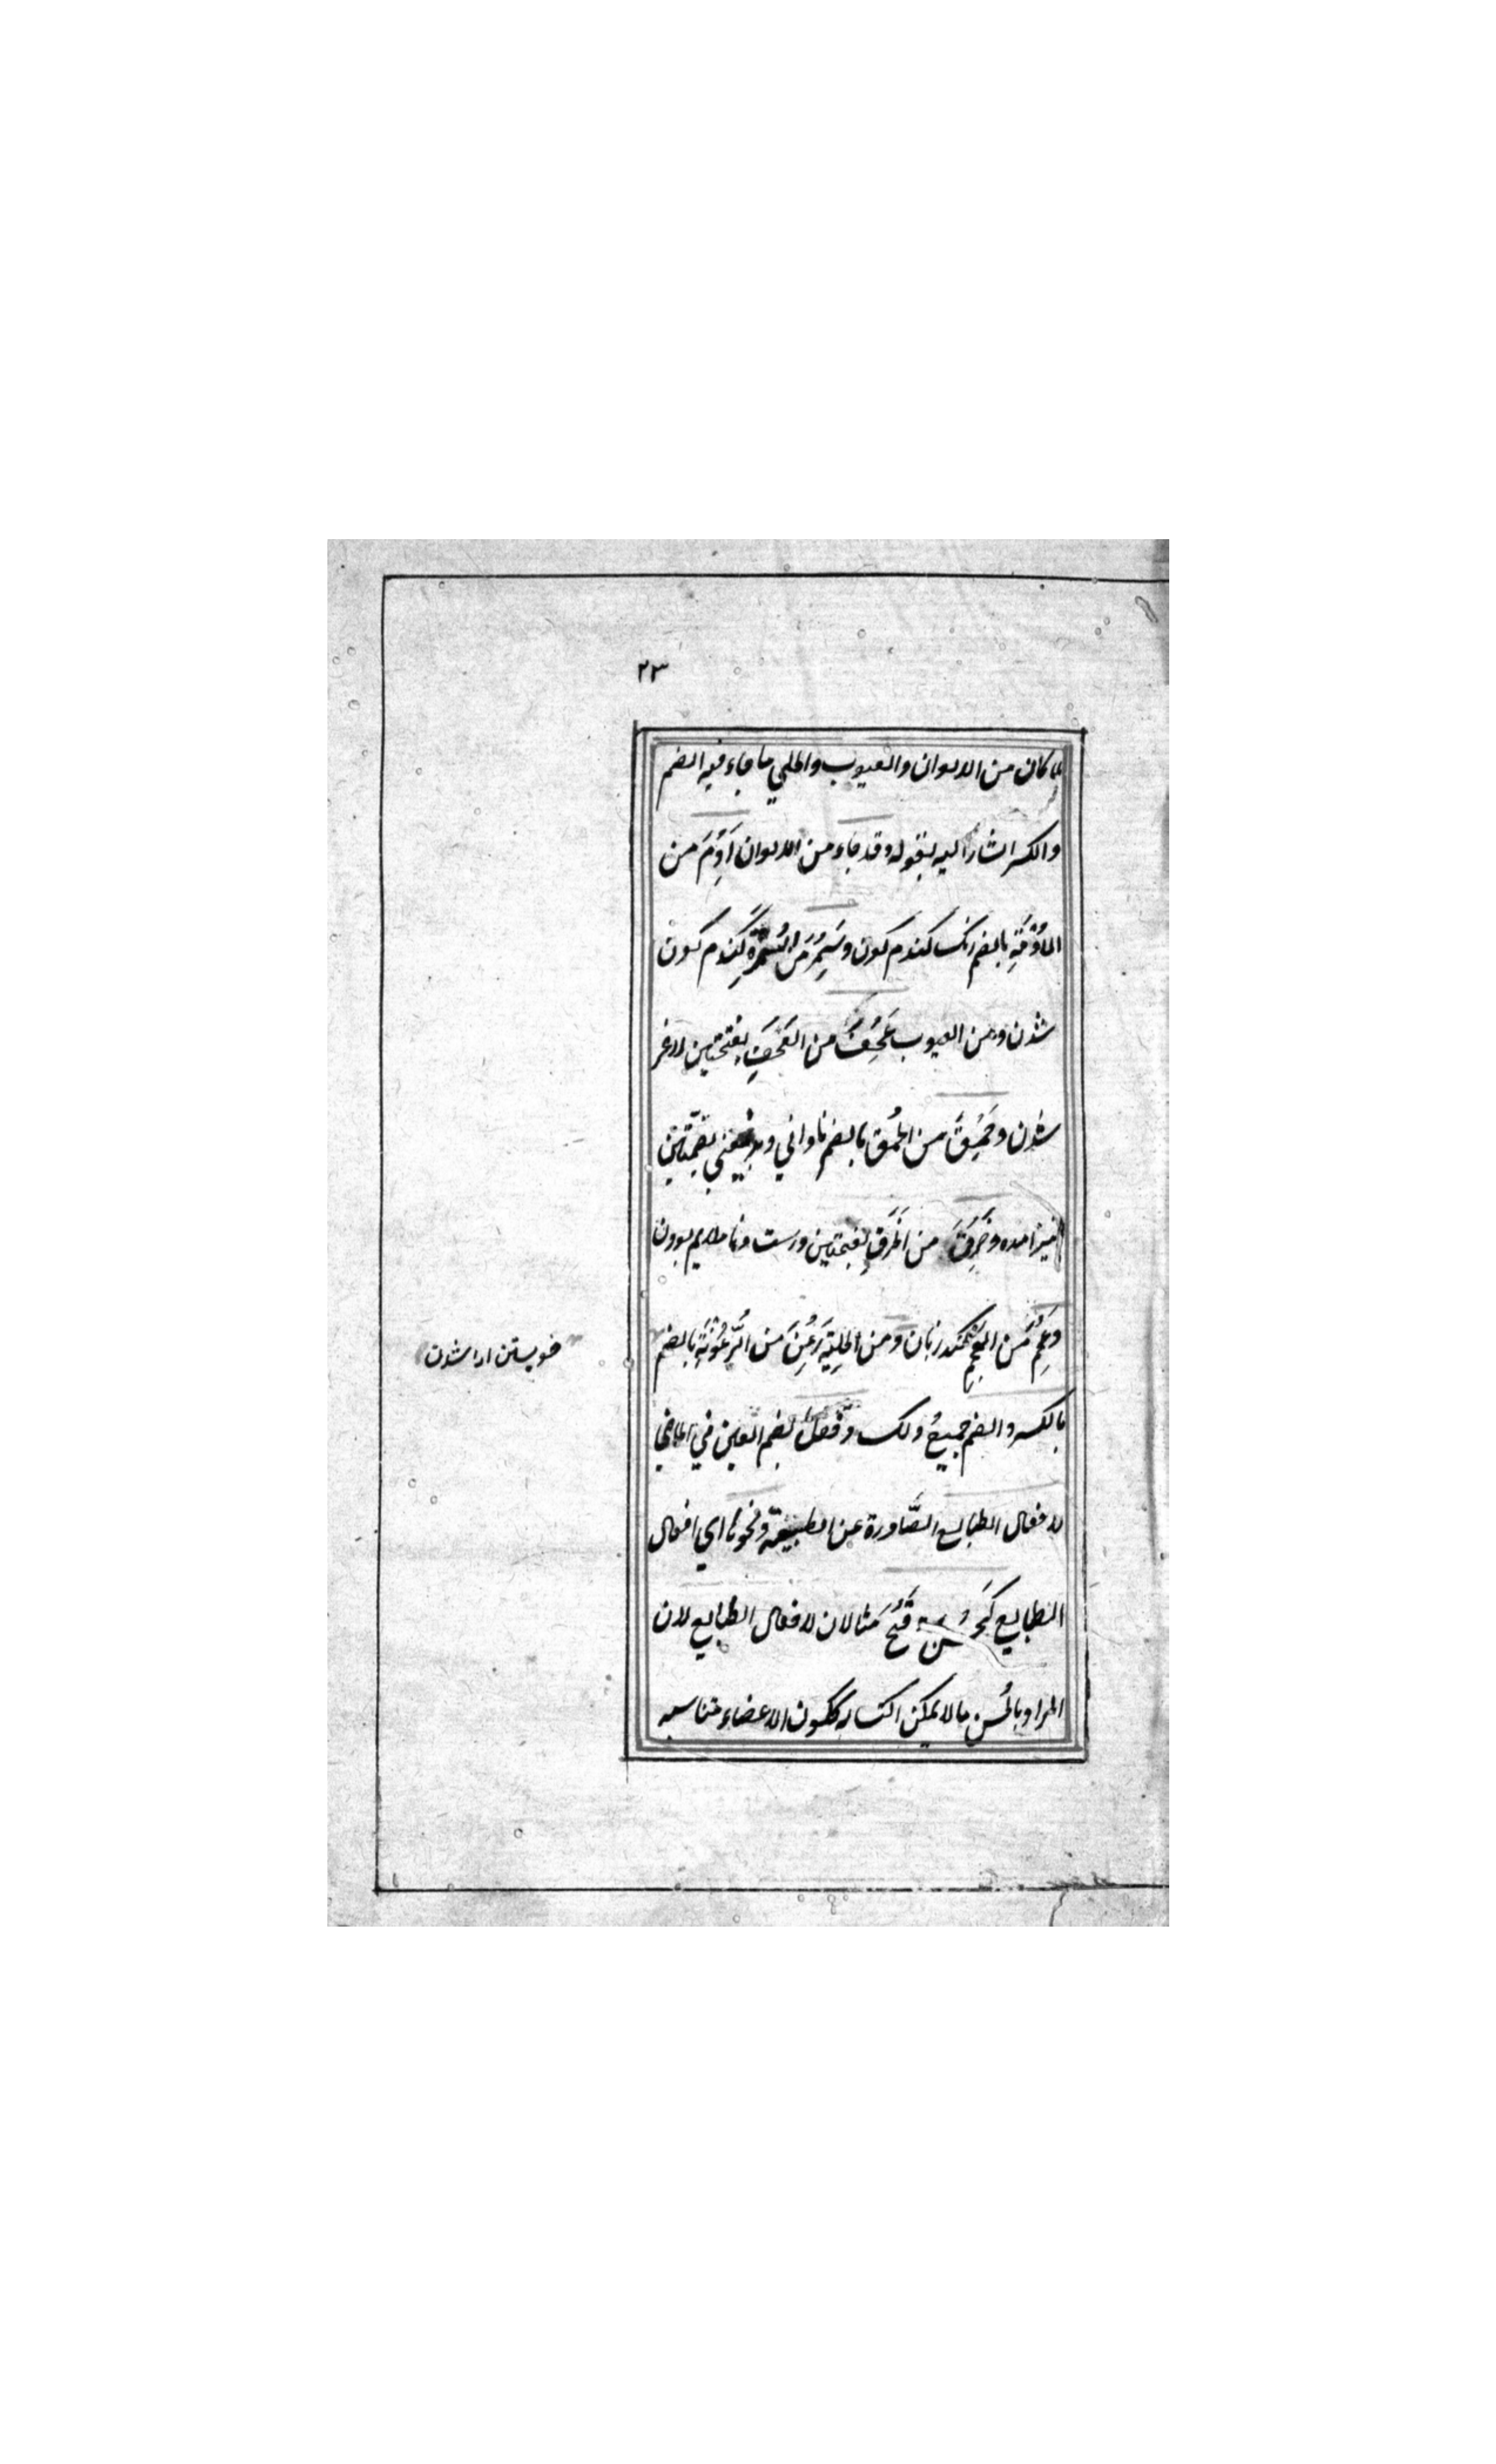 ٢٣
لما كان من الالوان والعيوب والحلي ما جاء فيه الضم
والكسر اشار اليه بقوله وقد جاء من الالوان اَدُِمَ من
الاُدْمَةِ بالضم رنگ كندم كون وسَمُِرَ من السُّمْرَةِ كندم كون
شدن ومن العيوب عَجُِفَ من العَجَفِ بفتحتين لاغر
شدن وحَمُِقَ من الحُمق بالضم ناداني وبضمتين
نيز امده وخَرُِقَ من الخَرَقِ بفتحتين درست ونا ملايم بودن
وعَجُِمَ من العجم كند زبان ومن الحِلية رَعُِنَ من الرُّعُونَةِ بالضم
خويستن ارا شدن
بالكسر والضم جميع ذلك وفَعُل بضم العين في الماضي
لافعال الطبايع الصَّادرة عن الطبيعة ونحوها اي افعال
الطبايع كَحَسُنَ وقَبُحَ مثالان لافعال الطبايع لان
المراد بالحُسن ما لا يمكن اكتسابه ككون الاعضاء متناسبه